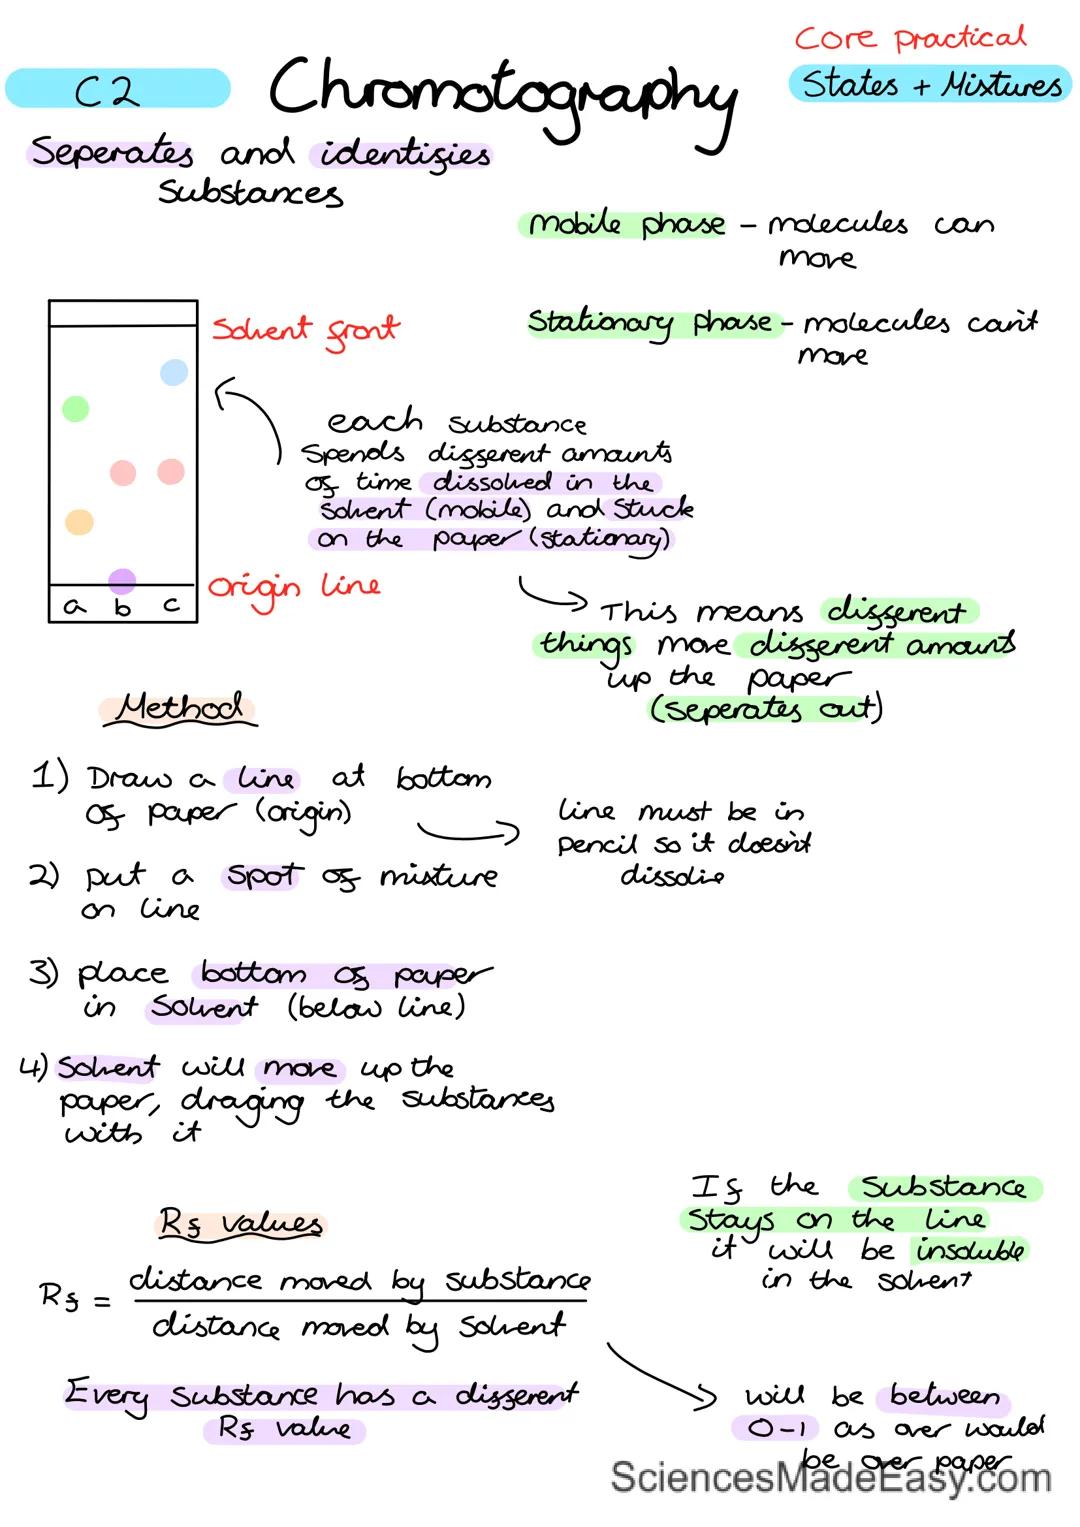 Core practical
C2
Chromotography
States + Mixtures
Seperates and identifies
Substances
Mobile phase - molecules can
move
Stationary phase - molecules can't
move
Solvent front
each substance
Spends different amounts
of time dissolved in the
Solvent (mobile) and Stuck
on the paper (stationary)
Origin line
a b c
This means different
things move different amounts
up the paper
(Seperates out)
Method
1) Draw a line at bottom
of paper (origin)
line must be in
pencil so it doesn't
dissolve
2) put a spot of mixture
on line
3) place bottom of paper
in Solvent (below line)
4) Solvent will move up the
paper, draging the substances
with it
If the Substance
Stays on the line
it will be insoluble
in the solvent
Rf values
Rf = distance moved by substance
distance moved by Solvent
Every Substance has a different
Rf value
will be between
0-1 as over would
be over paper
SciencesMadeEasy.com